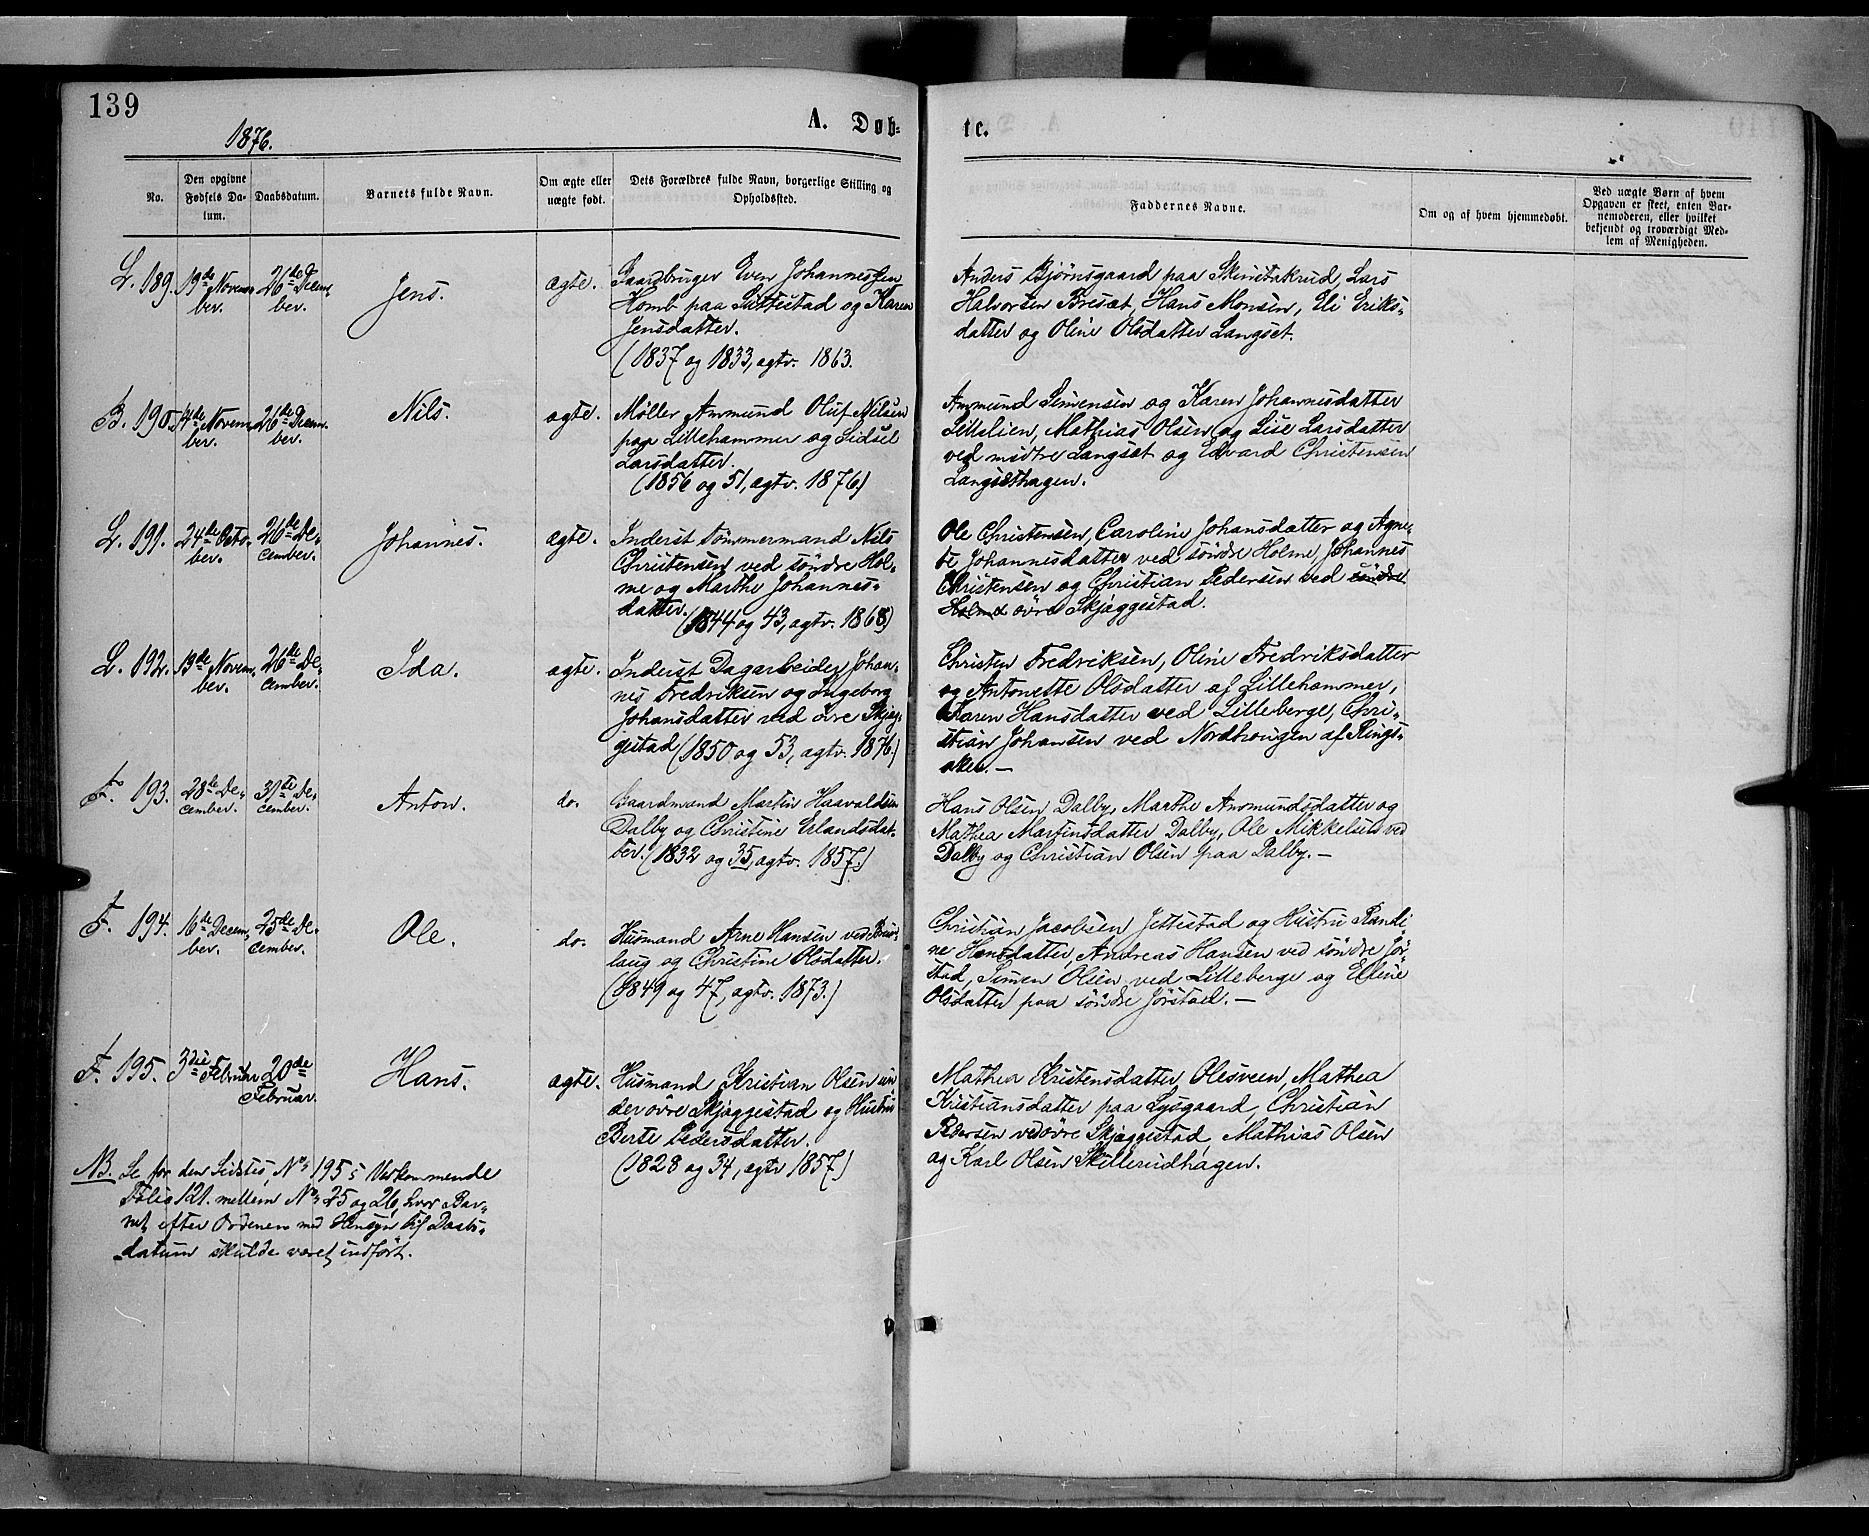 139
1876.
A. Døb-
te.
No.
Den opgivne Fødsels Da-
tum.
Daabsdatum.
Barnets fulde Navn.
Om ægte eller
uægte født.
Dets Forældres fulde Navn, borgerlige Stilling og
Opholdssted.
Faddernes Navne.
Om og af hvem hjemmedøbt.
Ved uægte Børn af hvem
Opgaven er skeet, enten Bar-
nemoderen, eller hvilket
bekjendt og troværdigt Med-
lem af Menigheden.
L. 189.
19de Novem-
ber.
26de Decem-
ber.
Jens.
ægte.
Gaardbruger Even Johannessen
Homb paa Suttestad og Karen
Jensdatter.
(1837 og 1833, ægtv. 1863.
Anders Bjørnsgaard paa Skurtakrud, Lars
Halvorsen Bresæt, Hans Monsen, Eli Eriks-
datter og Oline Olsdatter Langset.
B. 190.
14de Novem-
ber.
26de Decem-
ber.
Nils.
ægte.
Møller Ammund Oluf Nilsen
paa Lillehammer og Sidsel
Larsdatter.
(1856 og 51, ægtv. 1876.)
Ammund Simensen og Karen Johannesdatter
Lillelien, Mathias Olsen og Lise Larsdatter
ved midtre Langsæt og Edvard Christensen
Langsæthagen.
L. 191.
24de Octo-
ber.
26de De-
cember.
Johannes.
ægte.
Inderst Tømmermand Nils
Christensen ved søndre Hol-
me og Marthe Johannes-
datter.
(1844 og 43, ægtv. 1868)
Ole Christensen, Caroline Johansdatter og Agne-
te Johannesdatter ved søndre Holme, Johannes
Christensen og Christian Pedersen ved søndre
Holme øvre Skjæggestad.
L. 192.
19de Novem-
ber.
26de De-
cember.
Ida.
ægte.
Inderst Dagarbeider Johan-
nes Fredriksen og Ingeborg
Johansdatter ved øvre Skjæg-
gestad (1850 og 53, ægtv. 1876.)
Christen Fredriksen, Oline Fredriksdatter
og Antonette Olsdatter af Lillehammer,
Karen Hansdatter ved Lilleberge, Chri-
stian Johansen ved Nordhougen af Rings-
aker. —
F. 193.
28de De-
cember.
31te De-
cember.
Anton.
do.
Gaardmand Martin Haavaldsen
Dalby og Christine Erlandsdat-
ter. (1832 og 35, ægtv. 1857.)
Hans Olsen Dalby, Marthe Ammundsdatter og
Mathea Martinsdatter Dalby, Ole Mikkelsen ved
Dalby og Christian Olsen paa Dalby. —
F. 194.
16de Decem-
ber.
25de De-
cember.
Ole.
do.
Husmand Arne Hansen ved
laug og Christine Olsdatter.
(1849 og 47, ægtv. 1873.)
Christian Jacobsen Jettestad og Hustru Randi
ne Hansdatter, Andreas Hansen ved søndre Jør-
stad, Simen Olsen ved Lilleberge og Elline
Olsdatter paa søndre Jørstad. —
F. 195.
3die Februar
20de
Februar.
Hans.
ægte.
Husmand Kristian Olsen un-
der øvre Skjæggestad og Hustru
Berte Pedersdatter.
(1828 og 34, ægtv 1857)
Mathea Kristensdatter Olesveen, Mathea
Kristiansdatter paa Lysgaard, Christian
Pedersen ved øvre Skjæggestad, Mathias Olsen
og Karl Olsen Skillerudhagen.
NB. Se for den Sidstes, No 195s Vedkommende
Folio 121. mellem No 25 og 26, hvor Bar-
net, efter Ordenen med Hensyn til Daabs-
datum skulde været indført.